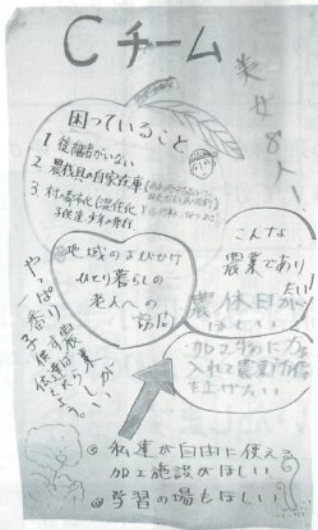 Cチーム
美女8人!
困っていること
1. 後継者がいない
2. 農機具の自家在庫
3. 村の都市化(混住化)
子供達、少年の非行
地域のよびかけ
ひとり暮らしの
老人への
訪問
こんな
農業であり
たい
農休日が
ほしい
加工物に力を
入れて農業所得
を上げたい
やっぱり農業しかない
一番
◎ 私達が自由に使える
加工施設がほしい
◎ 学習の場もほしい